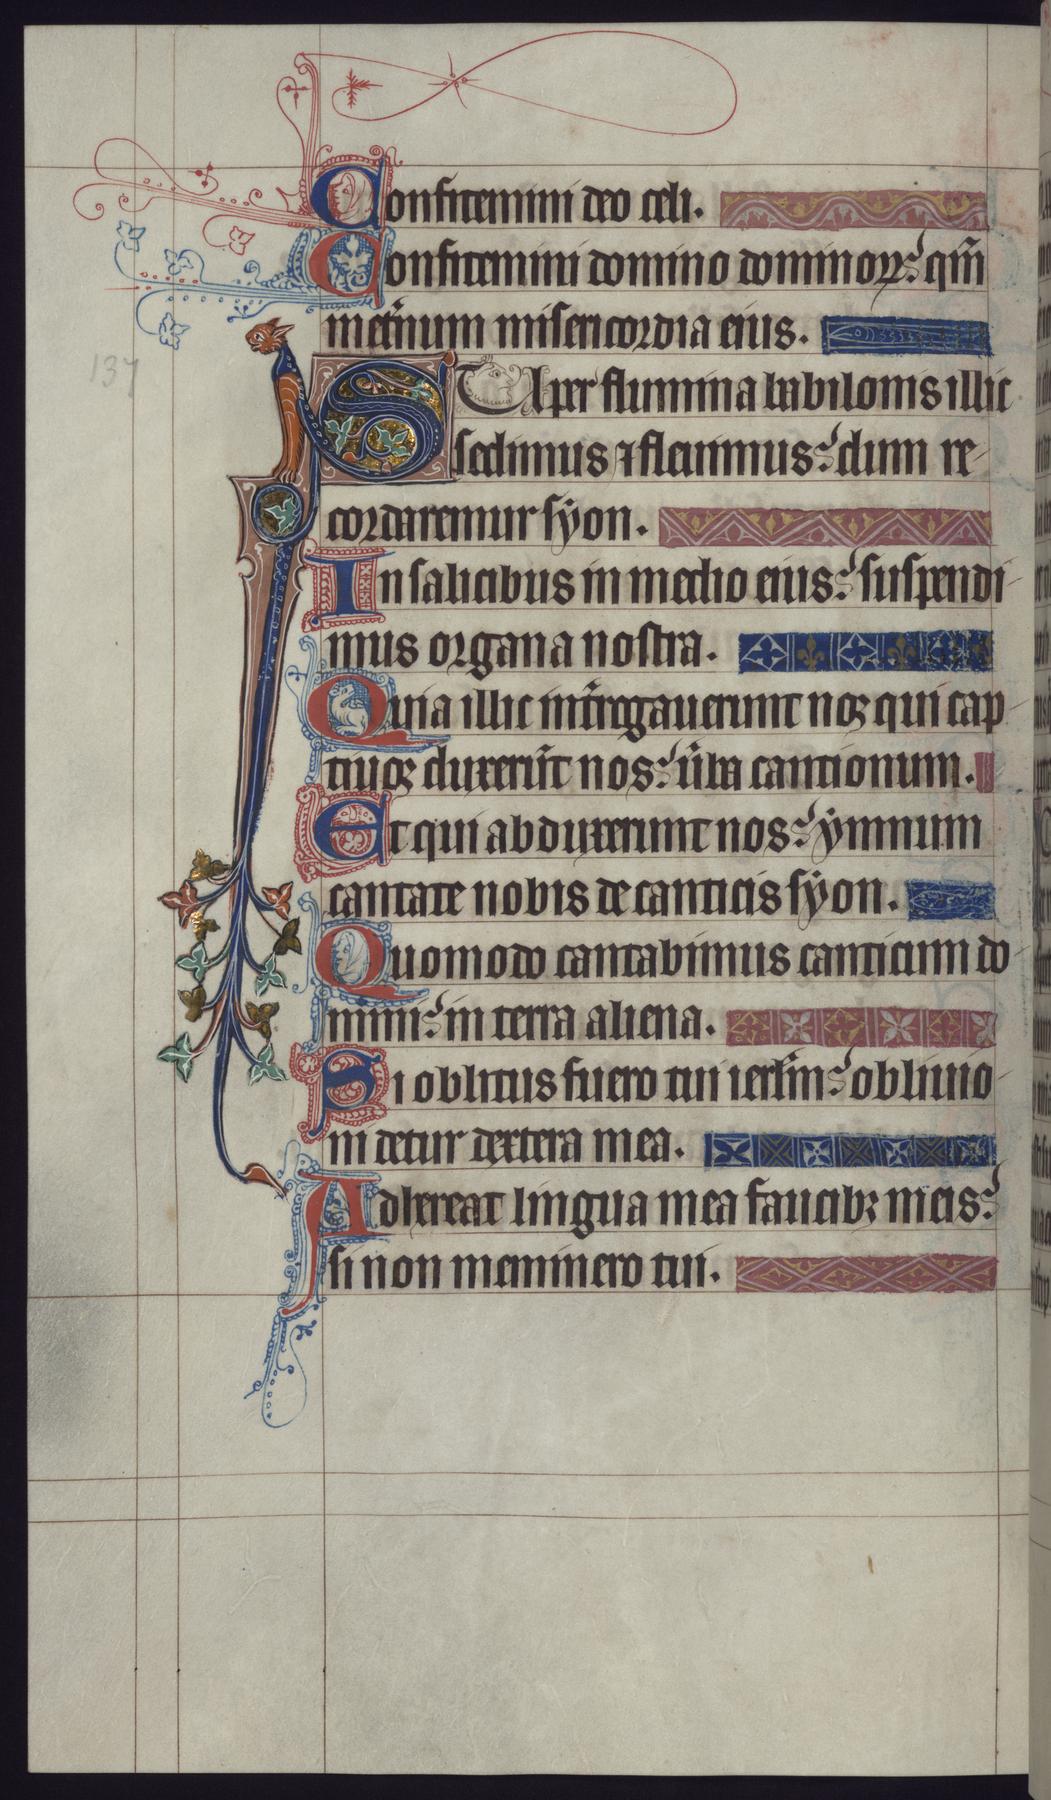 Confitemini deo celi.
Confitemini domino dominoꝝ: qm̄
inet̄num misericordia eius.
137
SUper flumina babilonis illic
sedimus ⁊ fleuimus: dum re-
cordaremur sẏon.
In salicibus in medio eius: suspendi-
mus organa nostra.
Quia illic int̄rogauerunt nos qui cap-
tiuos duxerūt nos: ūba cantionum.
Et qui abduxerunt nos: ẏmnum
cantate nobis de canticis sẏon.
Quomodo cantabimus canticum do-
mini: in terra aliena.
Si oblitus fuero tui ierl̄m: obliuio-
ni detur dextera mea.
Adhereat lingua mea faucibꝫ meis:
si non meminero tui.